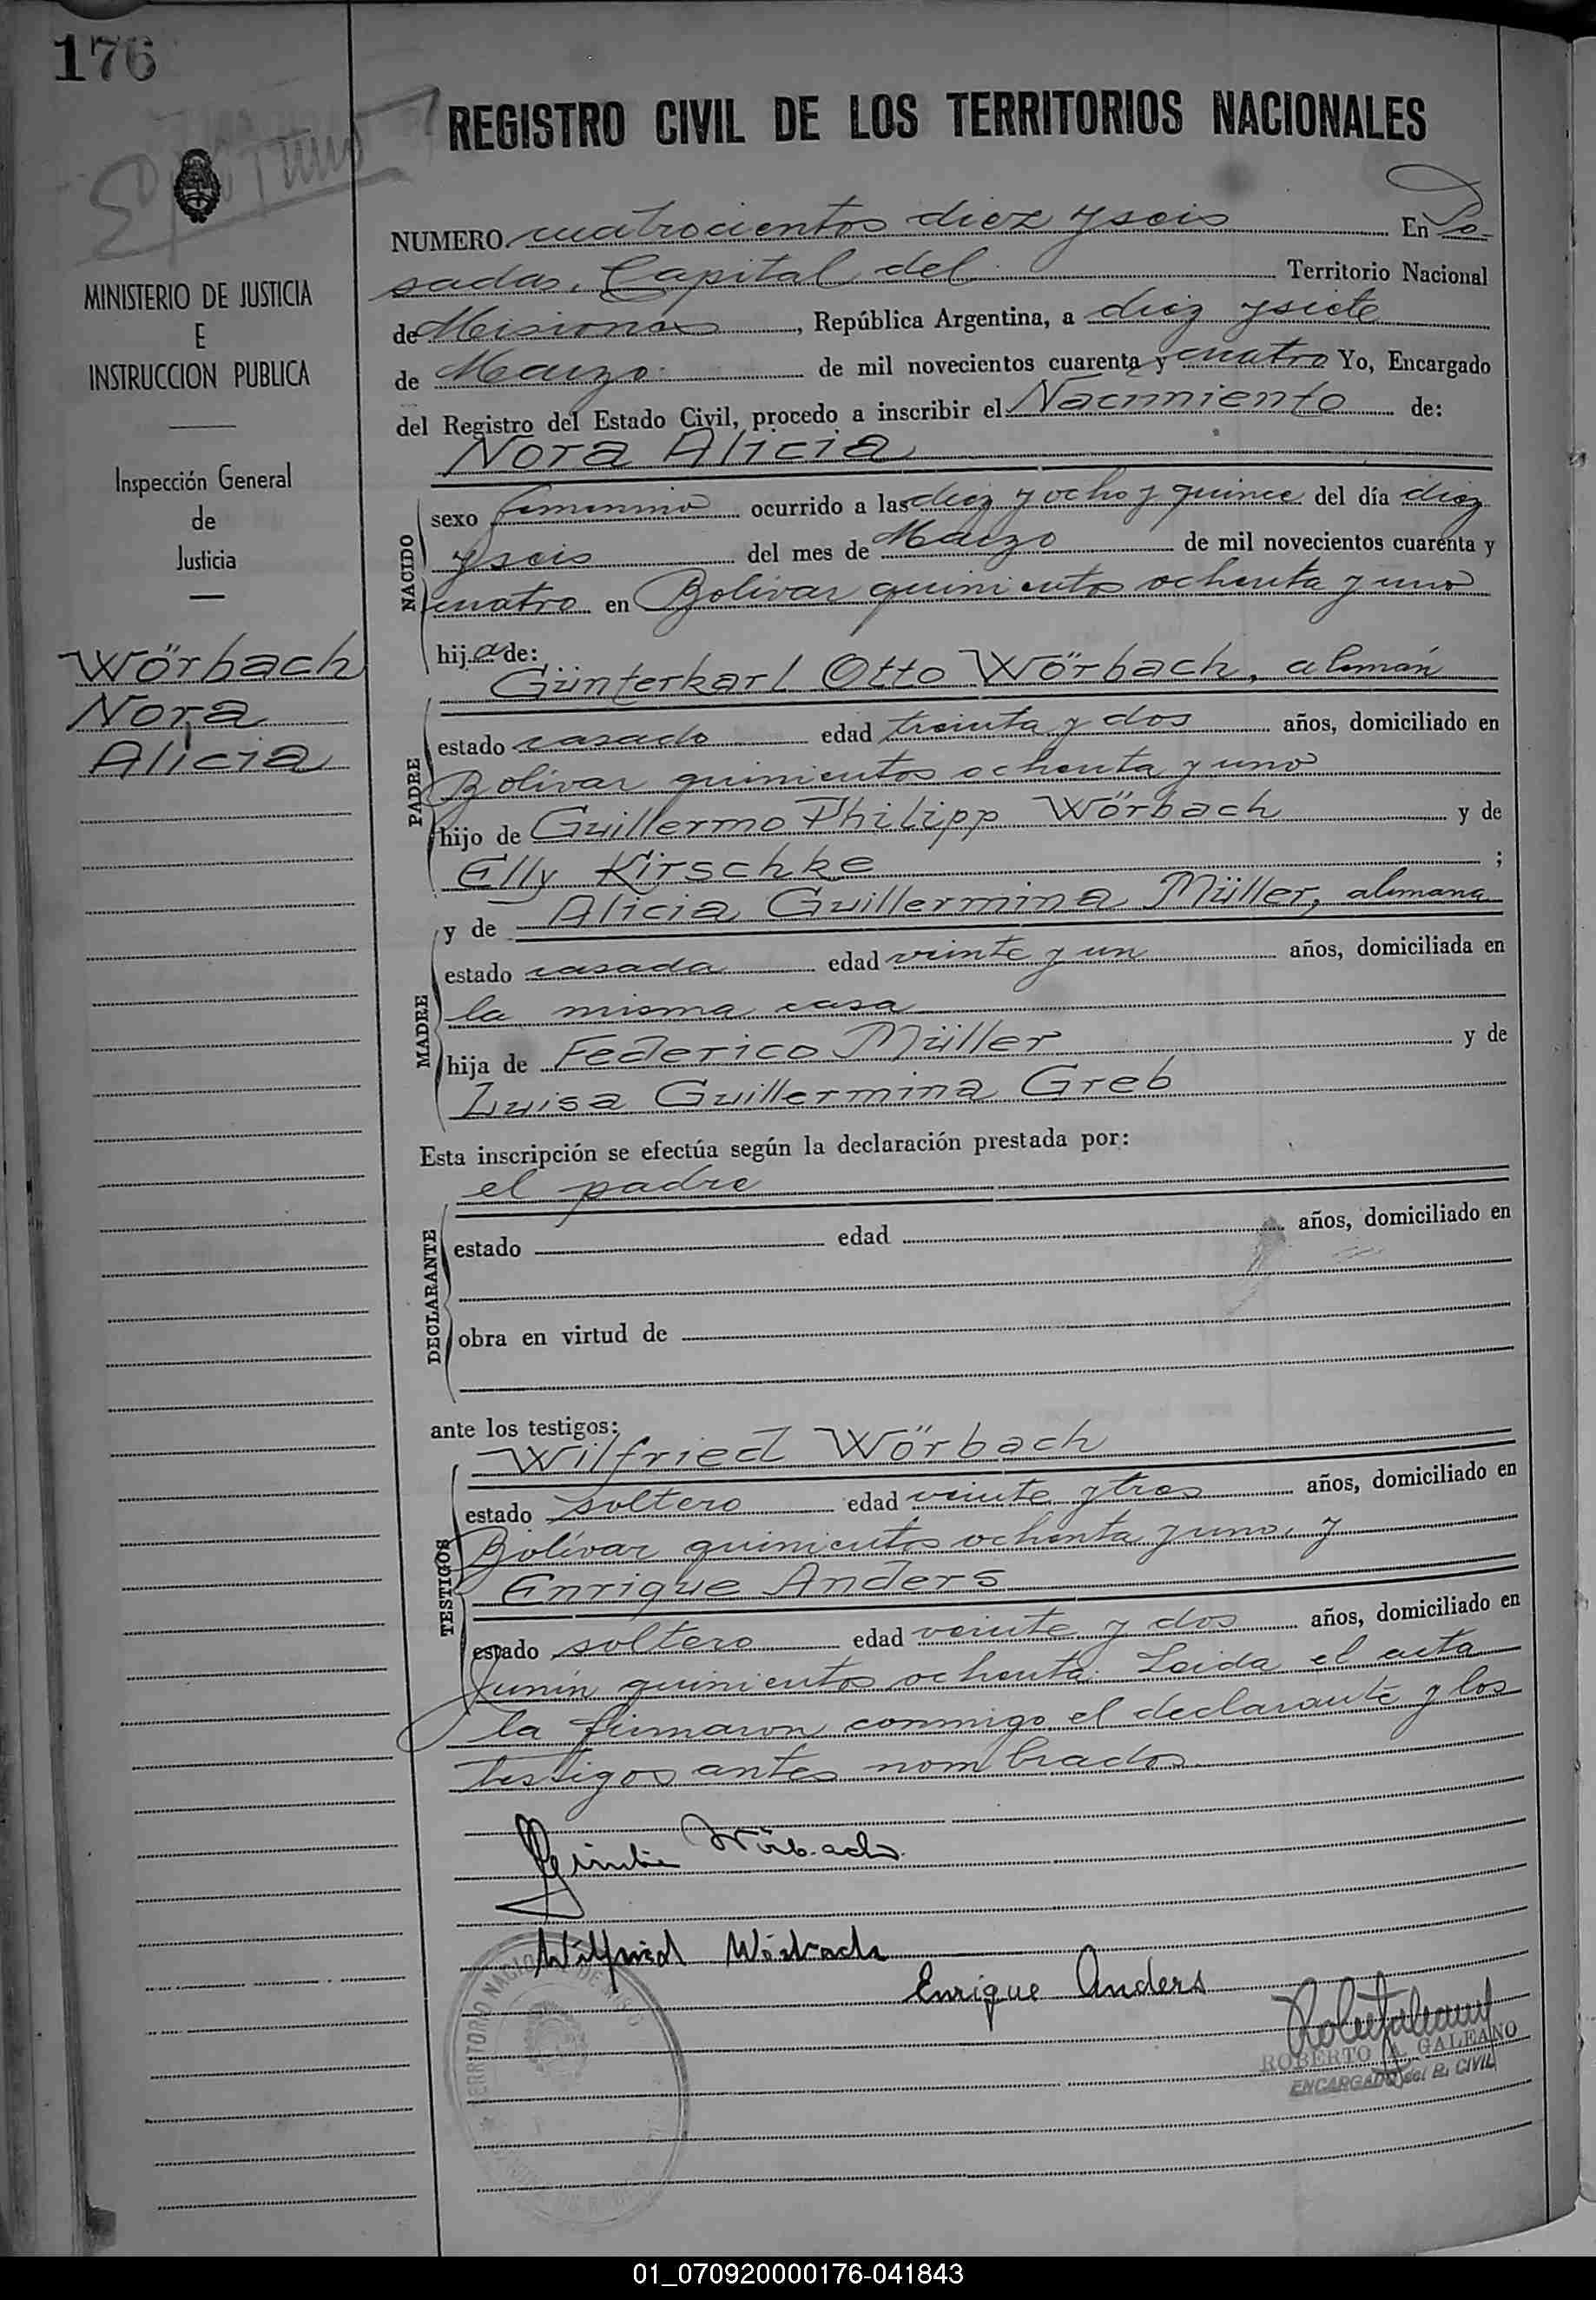 176
REGISTRO CIVIL DE LOS TERRITORIOS NACIONALES
MINISTERIO DE JUSTICIA
E
INSTRUCCION PUBLICA
Inspección General
de
Justicia
Wörbach
Nora
Alicia
NUMERO cuatrocientos diez y seis En Po-
sadas, Capital del Territorio Nacional
de Misiones, República Argentina, a diez y siete
de Marzo de mil novecientos cuarenta y cuatro Yo, Encargado
del Registro del Estado Civil, procedo a inscribir el Nacimiento de:
Nora Alicia
NACIDO
sexo femenino ocurrido a las diez y ocho y quince del día diez
y seis del mes de Marzo de mil novecientos cuarenta y
cuatro en Bolívar quinientos ochenta y uno
hija de:
Günterkarl Otto Wörbach, alemán
PADRE
estado casado edad treinta y dos años, domiciliado en
Bolívar quinientos ochenta y uno
hijo de Guillermo Philipp Wörbach y de
Elly Kirschke ;
y de Alicia Guillermina Müller, alemana
MADRE
estado casada edad veinte y un años, domiciliada en
la misma casa
hija de Federico Müller y de
Luisa Guillermina Greb
Esta inscripción se efectúa según la declaración prestada por:
el padre
DECLARANTE
estado edad años, domiciliado en
obra en virtud de
ante los testigos:
Wilfried Wörbach
TESTIGOS
estado soltero edad veinte y tres años, domiciliado en
Bolívar quinientos ochenta y uno, y
Enrique Anders
estado soltero edad veinte y dos años, domiciliado en
Junín quinientos ochenta. Leida el acta
la firmaron conmigo el declarante y los
testigos antes nombrados.
Wörbach
Wilfried Wörbach
Enrique Anders
ROBERTO A. GALEANO
ENCARGADO del R. CIVIL
01_070920000176-041843